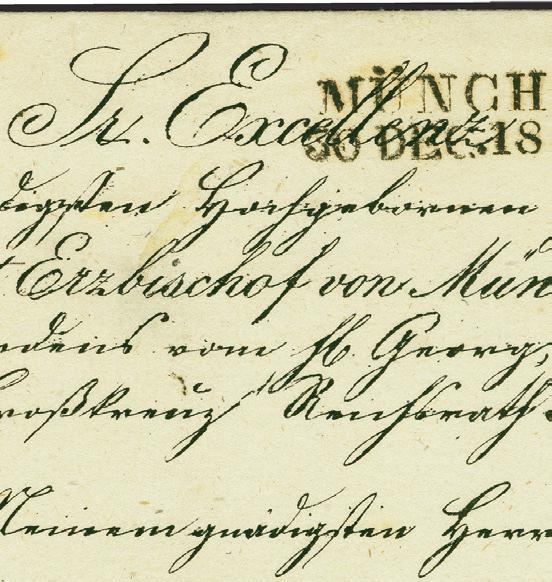 Sr. Excellenz
MÜNCH
30 DEC. 18
digsten Hochgebornen
Erzbischof von Mün
rdens vom hl. Georg,
roßkreuz Reichsrath
Meinem gnädigsten Herr